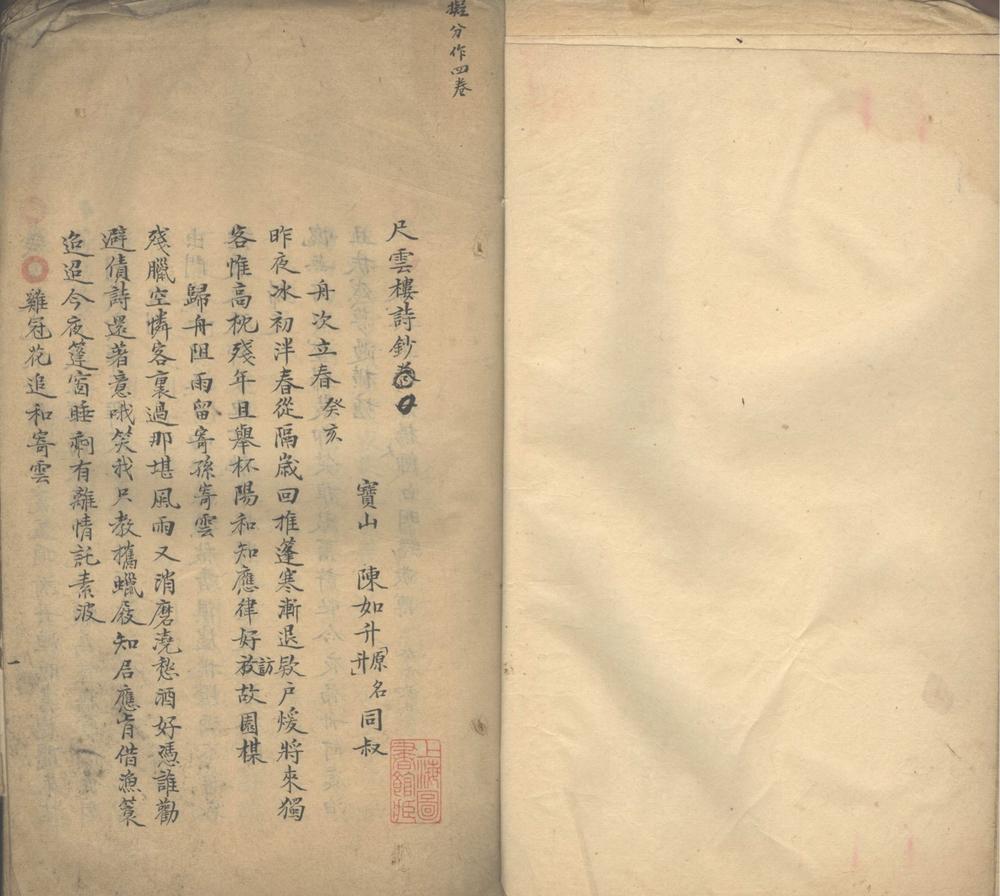 擬分作四卷
尺雲樓詩鈔卷
寶山 陳如升「原名升」同叔
舟次立春癸亥
昨夜冰初泮春從隔歲回推篷寒漸退欵户煖將來獨
客惟高枕殘年且舉杯陽和知應律好放訪故園楳
歸舟阻雨留寄孫寄雲
殘臘空憐客裏過那堪風雨又消磨澆愁酒好憑誰勸
避債詩還著意哦笑我只教攜蠟屐知君應肯借漁蓑
迢迢今夜篷窗睡剩有離情託素波
雞冠花追和寄雲
上海圖書館藏